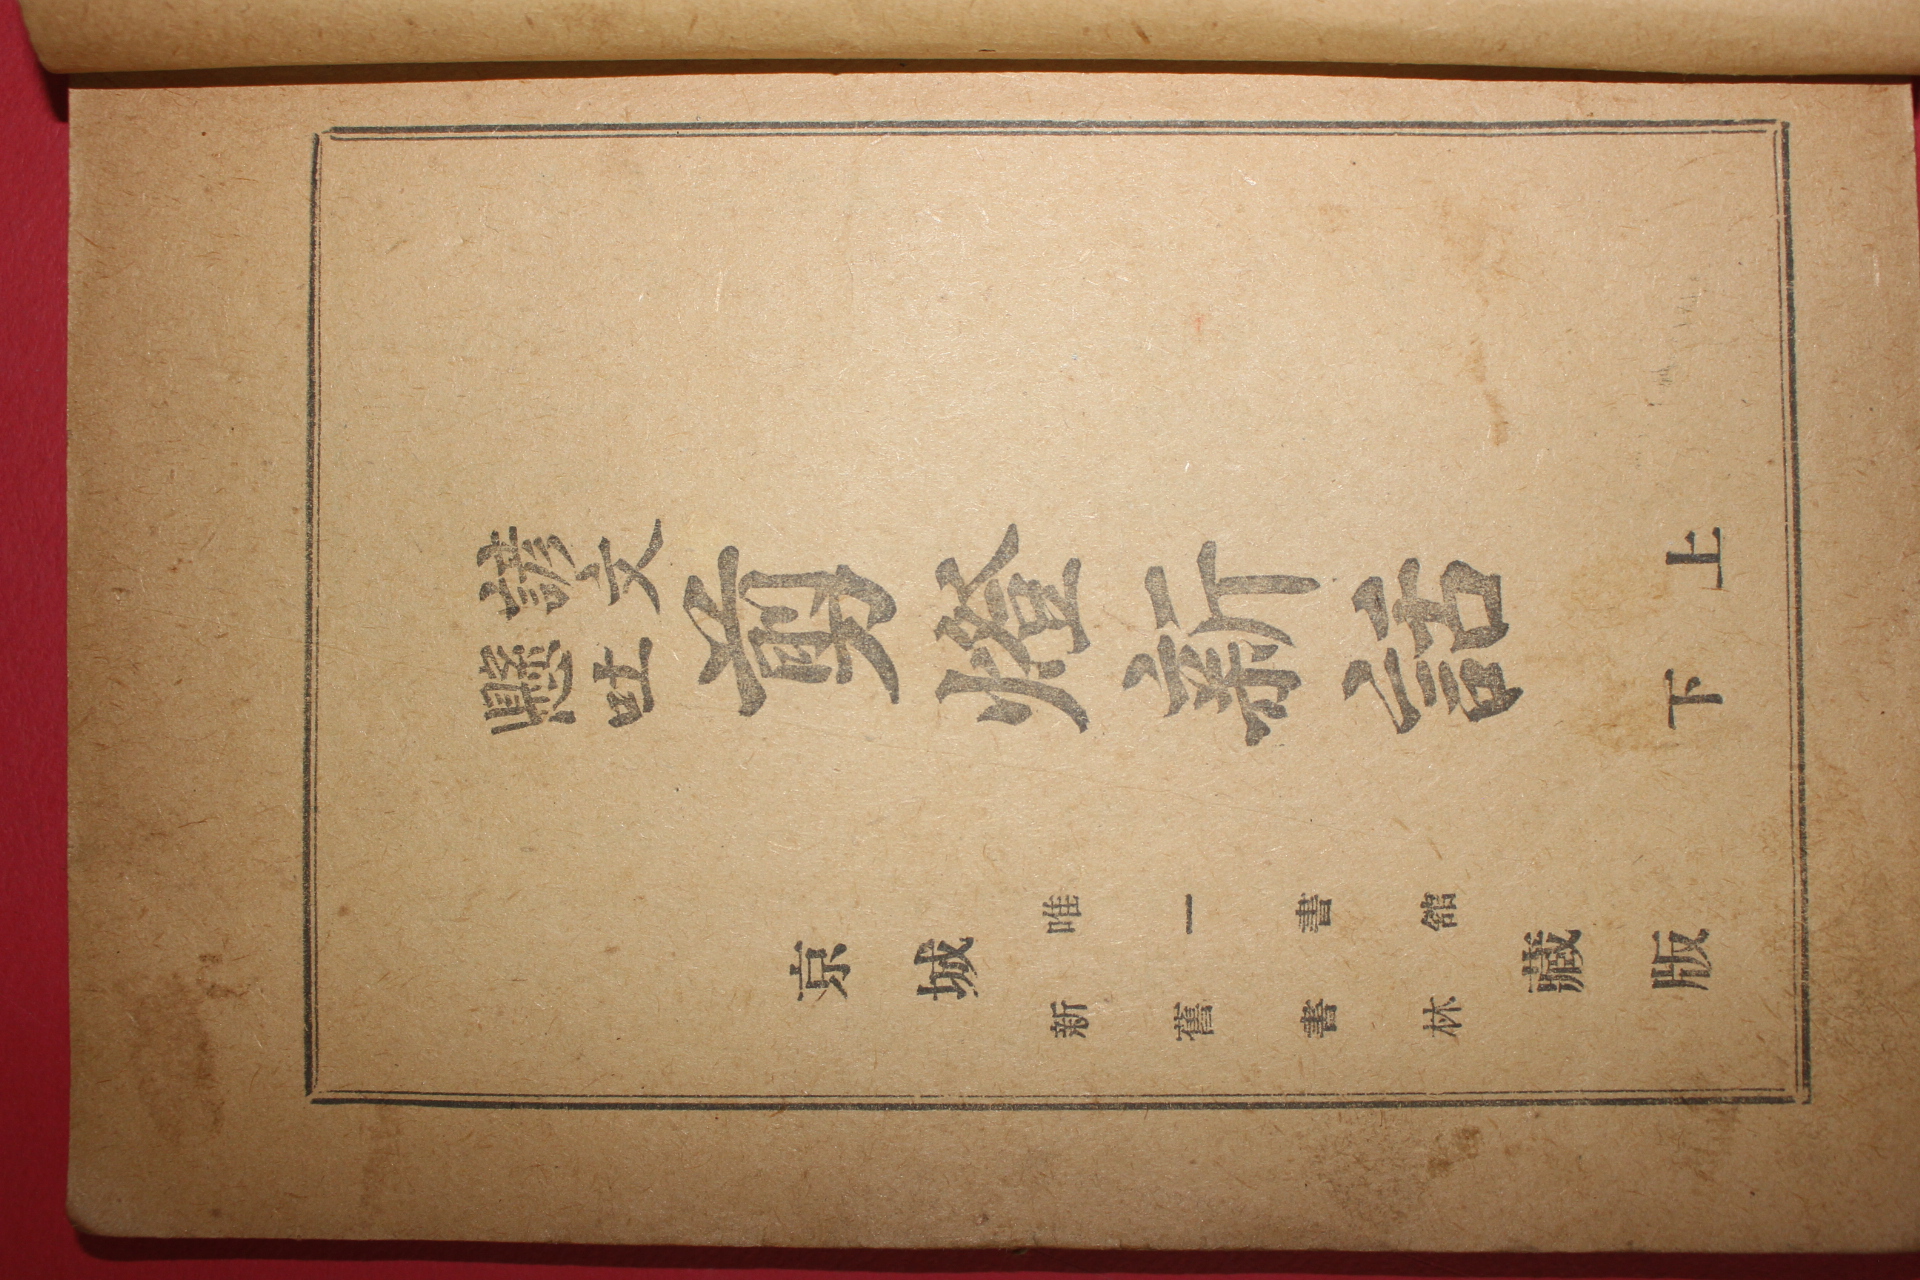 諺文
懸吐
剪燈新話
上
下
京城
唯一書舘
新舊書林
藏版